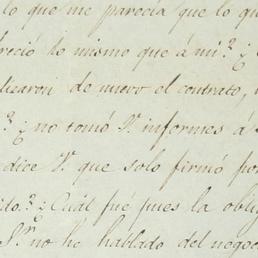 lo que me parecía que lo qu
reció lo mismo que á mi? ¿
licaron de nuevo el contrato,
? ¿no tomó V. informes á
dice V. que solo firmó por
ido? ¿Cuál fué pues la oblig
S.r no he hablado del negoc